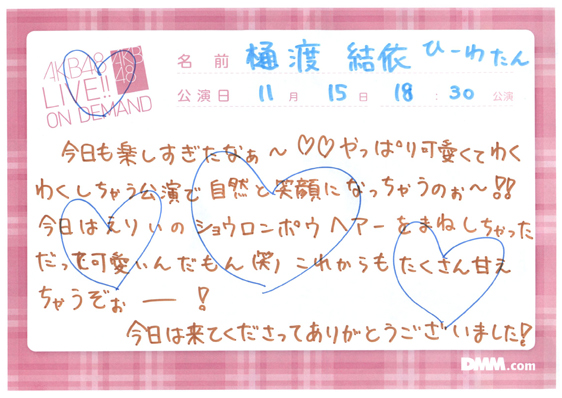 AKB48
LIVE!!
ON DEMAND
AKB
48
名前 樋渡 結依 ひーわたん
公演日 11月 15日 18:30公演
今日も楽しすぎたなぁ～♡♡やっぱり可愛くてわく
わくしちゃう公演で自然と笑顔になっちゃうのぉ～!!
今日はえりぃのショウロンポウヘアーをまねしちゃった
だって可愛いんだもん(笑)これからもたくさん甘え
ちゃうぞぉー!
今日は来てくださってありがとうございました!
DMM.com